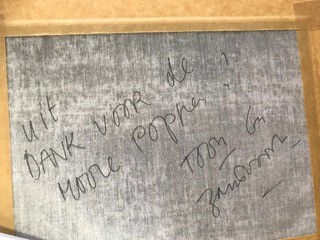 uit
DANK VOOR de
MOOIE Poppen!
TOON En